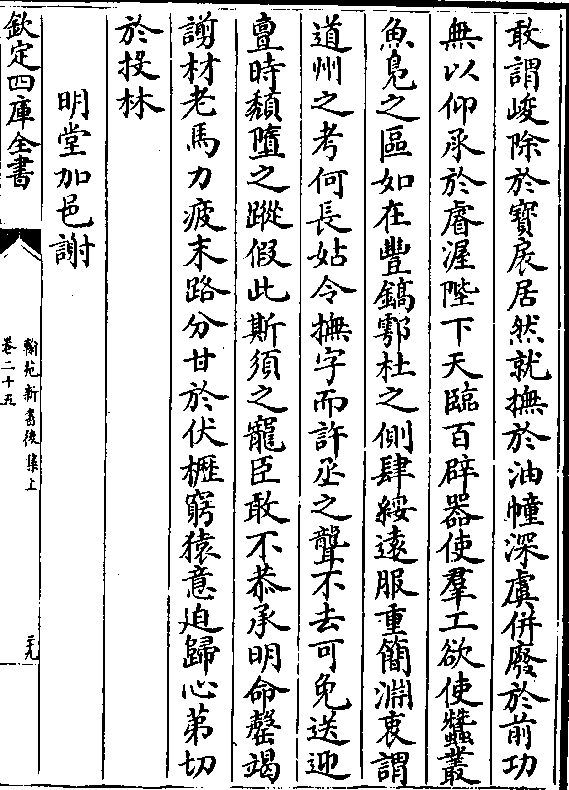 敢謂峻除於寶扆居然就撫於油幢深虞併廢於前功
無以仰承於睿渥陛下天臨百辟器使羣工欲使蠶叢
魚鳬之區如在豐鎬鄠杜之側肆綏遠服重簡淵衷謂
道州之考何長姑令撫字而許丞之聾不去可免送迎
亶時頽墮之蹤假此斯須之寵臣敢不恭承明命罄竭
謭材老馬力疲末路分甘於伏櫪窮猿意迫歸心第切
於投林
明堂加邑謝
欽定四庫全書
翰苑新書後集上
卷二十五